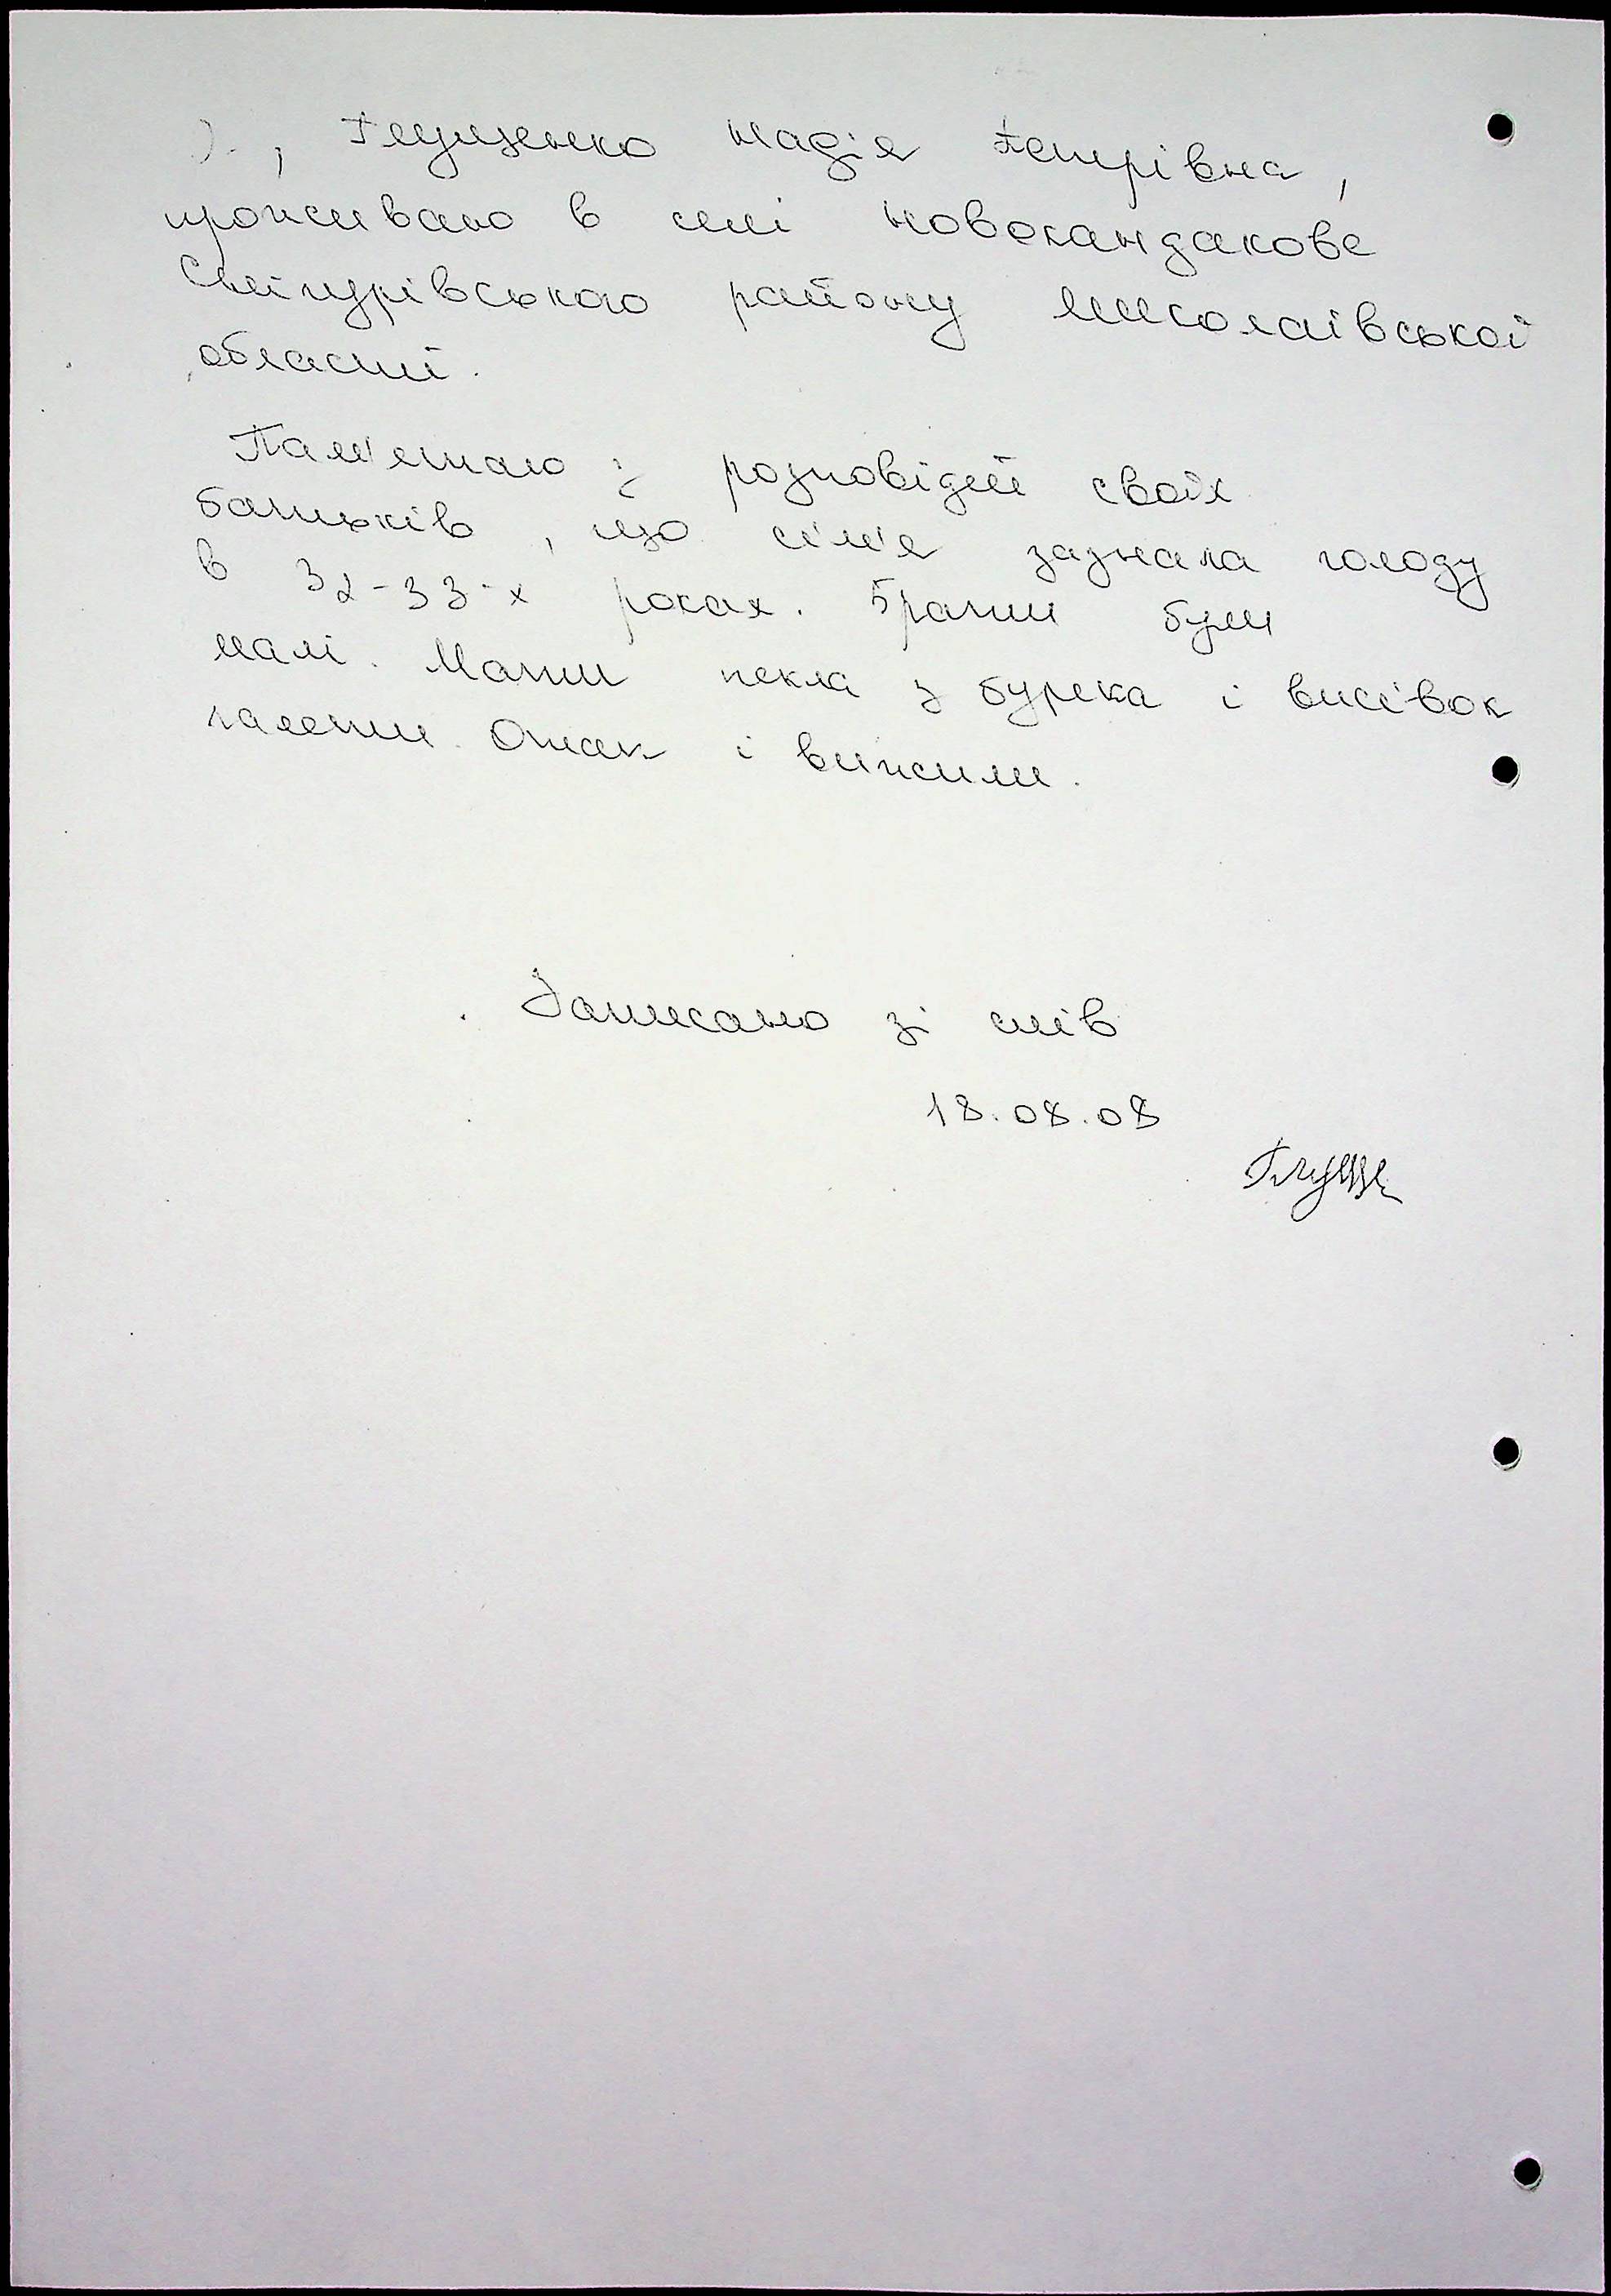 Я, Глущенко Надія Петрівна,
проживаю в селі Новокандакове
Снігурівського району Миколаївської
області.
Пам'ятаю з розповідей своїх
батьків, що сім'я зазнала голоду
в 32-33-х роках. Брати були
малі. Мати пекла з буряка і висівок
галети. Отак і вижили.
Записано зі слів
18.08.08
Глуще